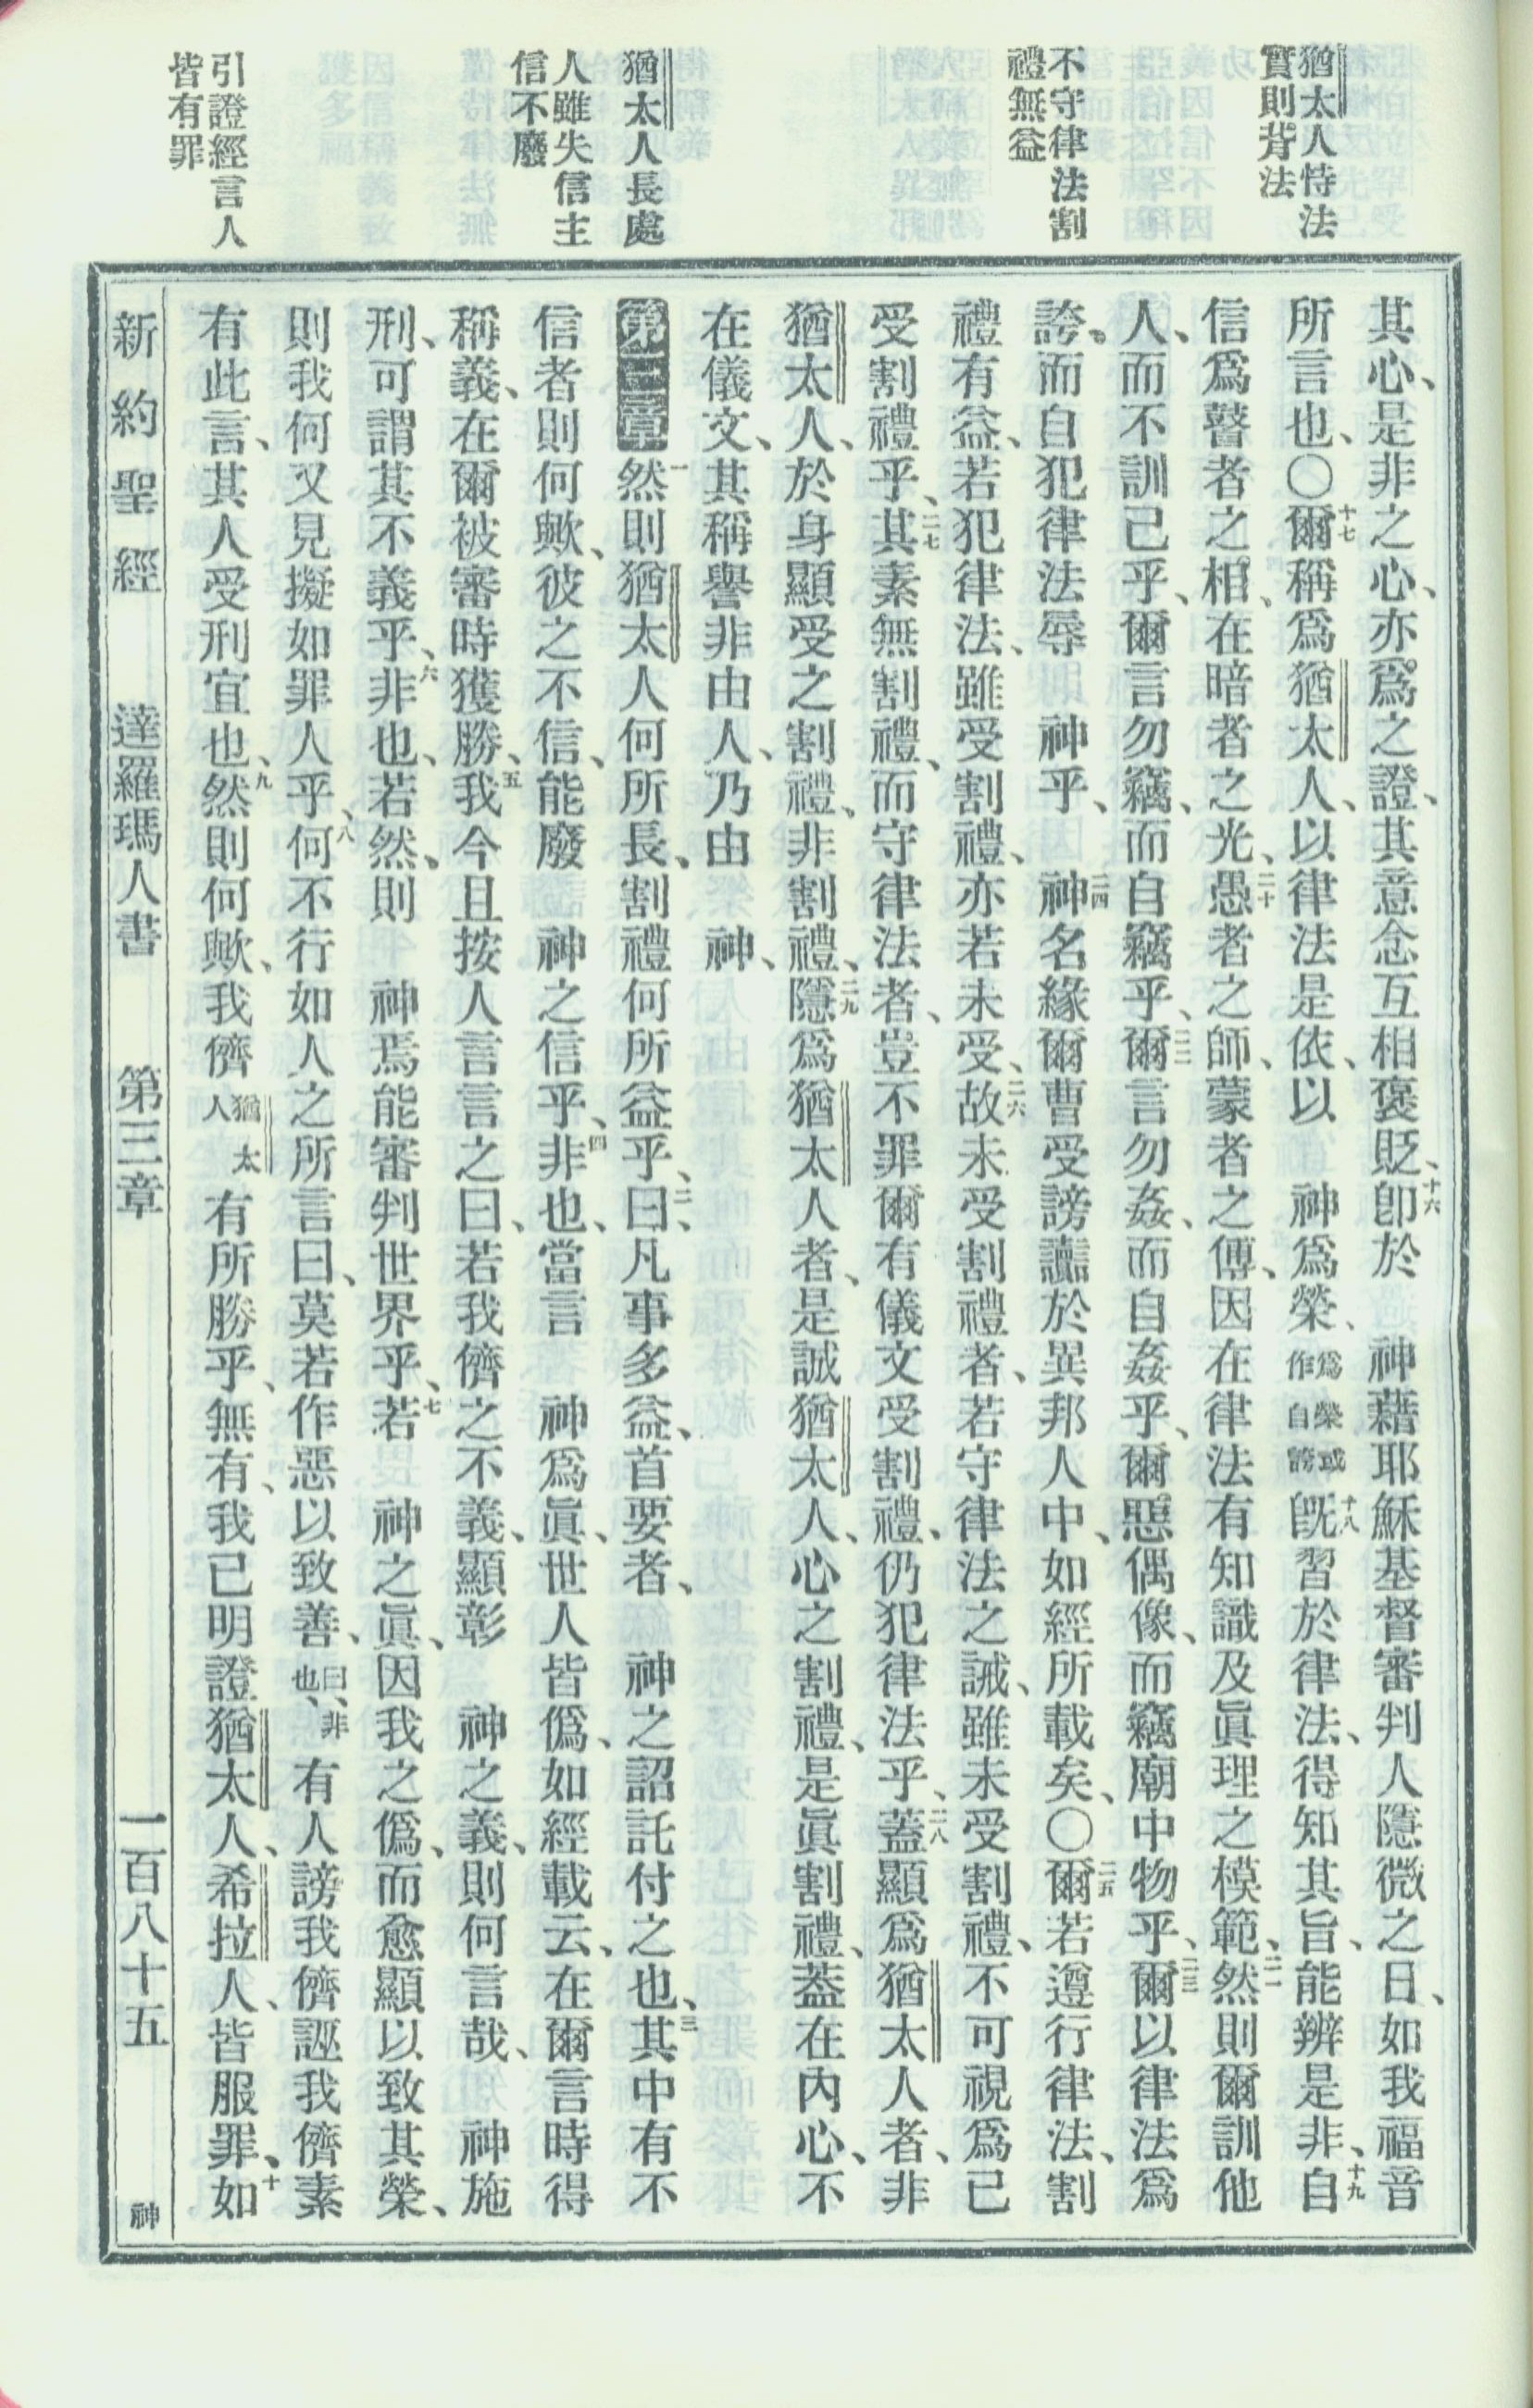 猶太人恃法
實則背法
不守律法割
禮無益
猶太人長處
人雖失信主
信不廢
引證經言人
皆有罪
其心、是非之心、亦爲之證、其意念互相褒貶、十六卽於　神藉耶穌基督審判人隱微之日、如我福音
所言也、〇十七爾稱爲猶太人、以律法是依、以　神爲榮、爲榮或作自誇十八旣習於律法、得知其旨、能辨是非、十九自
信爲瞽者之相、在暗者之光、二十愚者之師、蒙者之傅、因在律法有知識及眞理之模範、二一然則爾訓他
人、而不訓己乎、爾言勿竊、而自竊乎、二二爾言勿姦、而自姦乎、爾惡偶像、而竊廟中物乎、二三爾以律法爲
誇、而自犯律法辱　神乎、二四神名緣爾曹受謗讟於異邦人中、如經所載矣、〇二五爾若遵行律法、割
禮有益、若犯律法、雖受割禮、亦若未受、二六故未受割禮者、若守律法之誡、雖未受割禮、不可視爲已
受割禮乎、二七其素無割禮、而守律法者、豈不罪爾有儀文受割禮、仍犯律法乎、二八蓋顯爲猶太人者、非
猶太人、於身顯受之割禮、非割禮、二九隱爲猶太人者、是誠猶太人、心之割禮、是眞割禮、蓋在內心、不
在儀文、其稱譽非由人、乃由　神、
第三章一然則猶太人何所長、割禮何所益乎、二曰、凡事多益、首要者、　神之詔託付之也、三其中有不
信者則何歟、彼之不信、能廢　神之信乎、四非也、當言　神爲眞、世人皆僞、如經載云、在爾言時得
稱義、在爾被審時獲勝、五我今且按人言言之曰、若我儕之不義、顯彰　神之義、則何言哉、　神施
刑、可謂其不義乎、六非也、若然、則　神焉能審判世界乎、七若　神之眞、因我之僞、而愈顯以致其榮、
則我何又見擬如罪人乎、八何不行如人之所言曰、莫若作惡以致善、曰、非也、有人謗我儕誣我儕素
有此言、其人受刑宜也、九然則何歟、我儕猶太人有所勝乎、無有、我已明證猶太人、希拉人、皆服罪、十如
新約聖經　達羅瑪人書　第三章　一百八十五　神